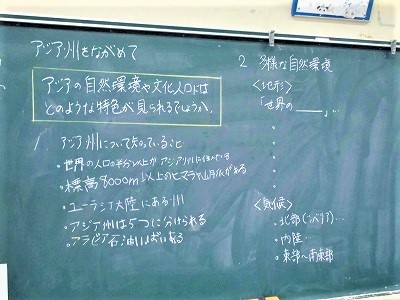 アジア州をながめて
アジアの自然環境や文化、人口には
どのような特色が見られるでしょうか。
1. アジア州について知っていること
・世界の人口の半分以上がアジア州に住んでいる
・標高8000m以上のヒマラヤ山脈がある
・ユーラシア大陸にある州
・アジア州は5つに分けられる
・アラビア石油いっぱいある
2 多様な自然環境
〈地形〉
「世界の＿＿＿」…
・
・
・
・
〈気候〉
・北部(シベリア)…
・内陸…
・東部〜南東部